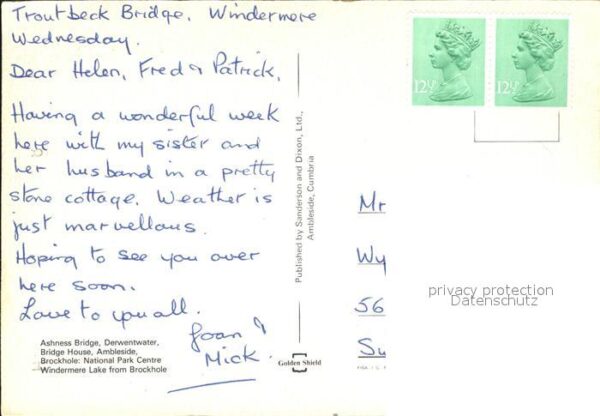 Troutbeck Bridge, Windermere
Wednesday.
Dear Helen, Fred & Patrick,
Having a wonderful week
here with my sister and
her husband in a pretty
stone cottage. Weather is
just marvellous.
Hoping to see you over
here soon.
Love to you all.
Joan &
Mick.
Ashness Bridge, Derwentwater,
Bridge House, Ambleside,
Brockhole: National Park Centre
Windermere Lake from Brockhole
Published by Sanderson and Dixon, Ltd.,
Ambleside, Cumbria
Golden Shield
12½P
12½P
Mr
Wy
56
Su
privacy protection
Datenschutz